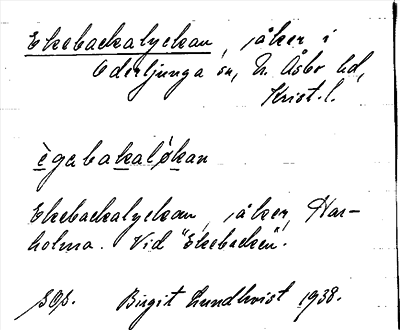 Ekebackalyckan, åker i
Oderljunga sn, N. Åsbo hd,
Krist. l.
ègabakaløkan
Ekebackalyckan, åker, Har-
holma. Vid "Ekebacken".
Birgit Lundkvist 1938.